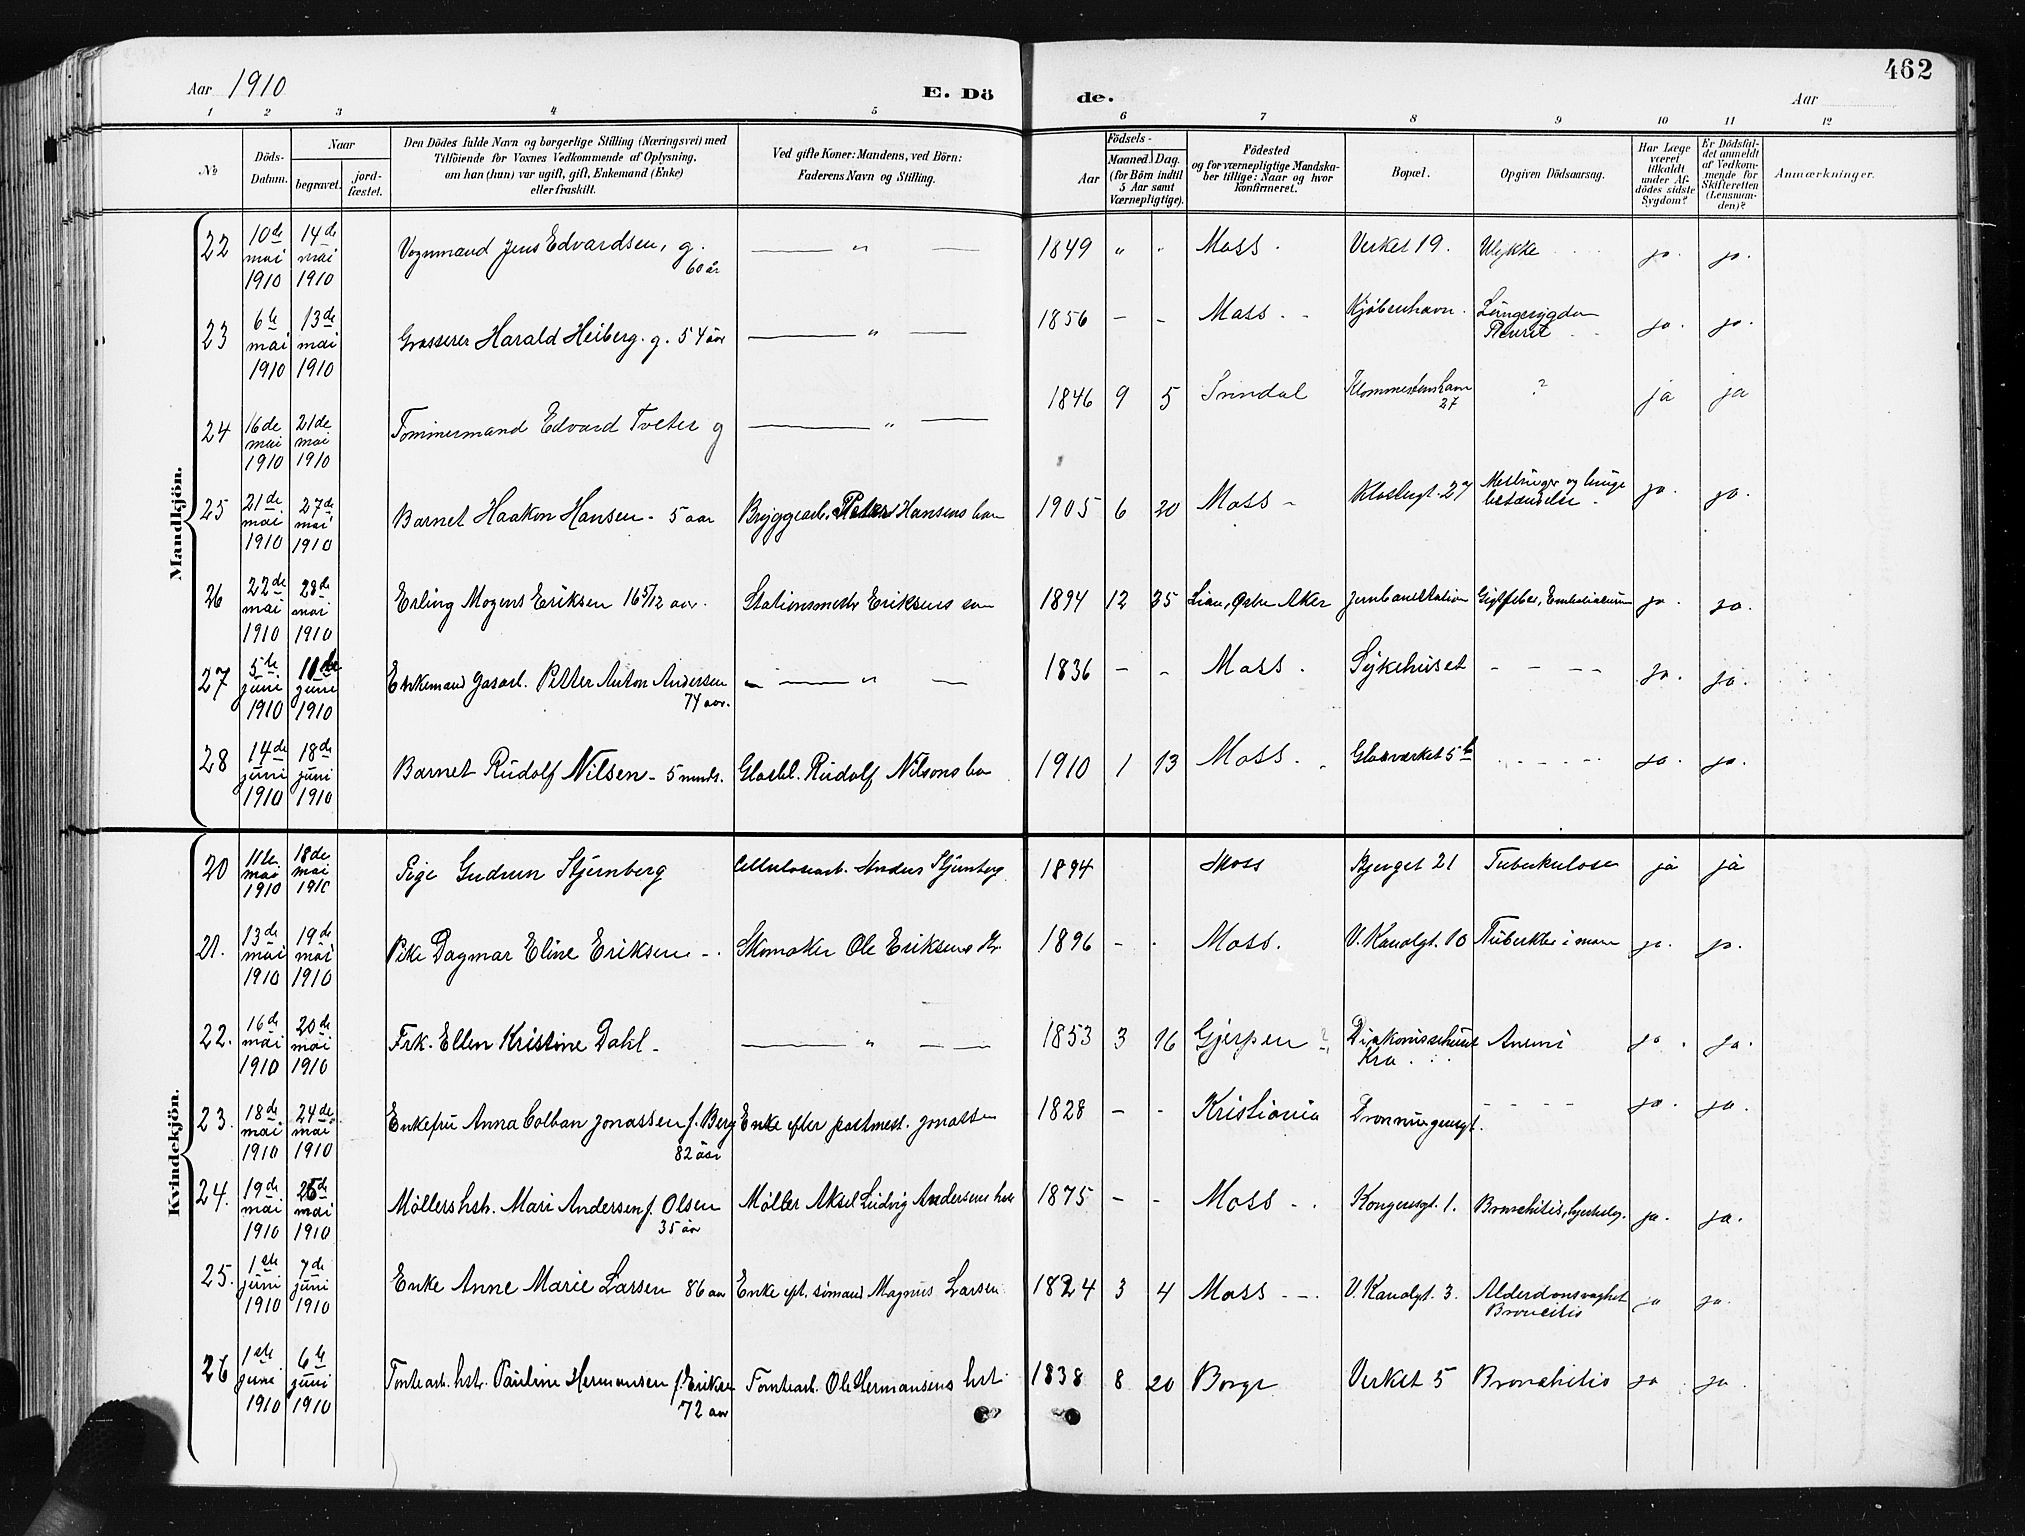 462
Aar 1910
E. Dö
de.
Aar
1 2 3 4 5 6 7 8 9 10 11 12
№
Döds-
Datum.
Naar
begravet.
jord-
fæstet.
Den Dödes fulde Navn og borgerlige Stilling (Næringsvei) med
Tilföiende for Voxnes Vedkommende af Oplysning,
om han (hun) var ugift, gift, Enkemand (Enke)
eller fraskilt.
Ved gifte Koner: Mandens, ved Börn:
Faderens Navn og Stilling.
Födsels-
Aar
Maaned. Dag.
(for Börn indtil
5 Aar samt
Værnepligtige).
Födested
og for værnepligtige Mandska-
ber tillige: Naar og hvor
konfirmeret.
Bopæl.
Opgiven Dödsaarsag.
Har Læge
været
tilkaldt
under Af-
dödes sidste
Sygdom?
Er Dödsfal-
det anmeldt
af Vedkom-
mende for
Skifteretten
(Lensman-
den)?
Anmærkninger.
Mandkjön.
22 10de mai 1910 14de mai 1910 Vognmand Jens Edvardsen, g. 60 år — " — 1849 " " Moss. Verket 19. Ulykke ja. ja.
23 6te mai 1910 13de mai 1910 Grosserer Harald Heiberg. g. 54 år — " — 1856 - - Moss. Kjøbenhavn. Lungesygdom Pleurit ja. ja.
24 16de mai 1910 21de mai 1910 Tømmermand Edvard Tveter g — " — 1846 9 5 27 ? ja ja
25 21de mai 1910 27de mai 1910 Barnet Haakon Hansen - 5 aar Bryggearb. Peter Hansens 1905 6 20 Moss - 27 Meslinger og lunge betændelse - ja. ja.
26 22de mai 1910 28de mai 1910 Erling Mogens Eriksen 16 5/12 aar. Stationsmestr Eriksens søn 1894 12 Lian, Østre Aker Jernbanestation Gigtfeber, ja. ja.
27 5te juni 1910 juni 1910 Enkemand Gasarb. Petter Anton Andersen 74 aar. — " — 1836 - - Moss. Sykehuset - - - - ja. ja.
28 14de juni 1910 18de juni 1910 Barnet Rudolf Nilsen - 5 mnds. Glasbl. Rudolf Nilsons 1910 1 13 Moss. Glasværket 5 ja. ja.
Kvindekjön.
20 11te mai 1910 18de mai 1910 Pige Gudrun Stjernberg Cellulosearb. Anders Stjernberg 1894 Moss Bjerget 21 Tuberkulose ja ja
21. 13de mai 1910 19de mai 1910 Pike Dagmar Eline Eriksen - Skomaker Ole Eriksens 1896 - - Moss. V. Kanalgt. 10 Tuberkler i mave ja. ja.
22. 16de mai 1910 20de mai 1910 Frk. Ellen Kristine Dahl - — " — 1853 3 16 Gjerpen Diakonissehuset Kra Anemi ja. ja.
23. 18de mai 1910 24de mai 1910 Enkefru Anna Colban Jonassen f. Berg 82 åar Enke efter postmest. Jonassen 1828 - - Kristiania Dronningensgt. - - - - ja. ja.
24. 19de mai 1910 mai 1910 Møllershstr. Mari Andersen f. Olsen 35 år Møller Aksel Ludvig Andersens 1875 - - Moss - Kongensgt. 1. Bronchitis, ja. ja.
25. 1ste juni 1910 7de juni 1910 Enke Anne Marie Larsen 86 aar Enke eft. sømand Magnus Larsen 1824 3 4 Moss - - V. Kanalgt. 3. Alderdomsvaghet Broncitis ja ja.
26 1ste juni 1910 6te juni 1910 Tomtearb. hstr. Pauline Hermansen f. Eriksen 72 aar Tomtearb. Ole Hermansens hst. 1838 8 20 Borge Verket 5 Bronchitis ja. ja.